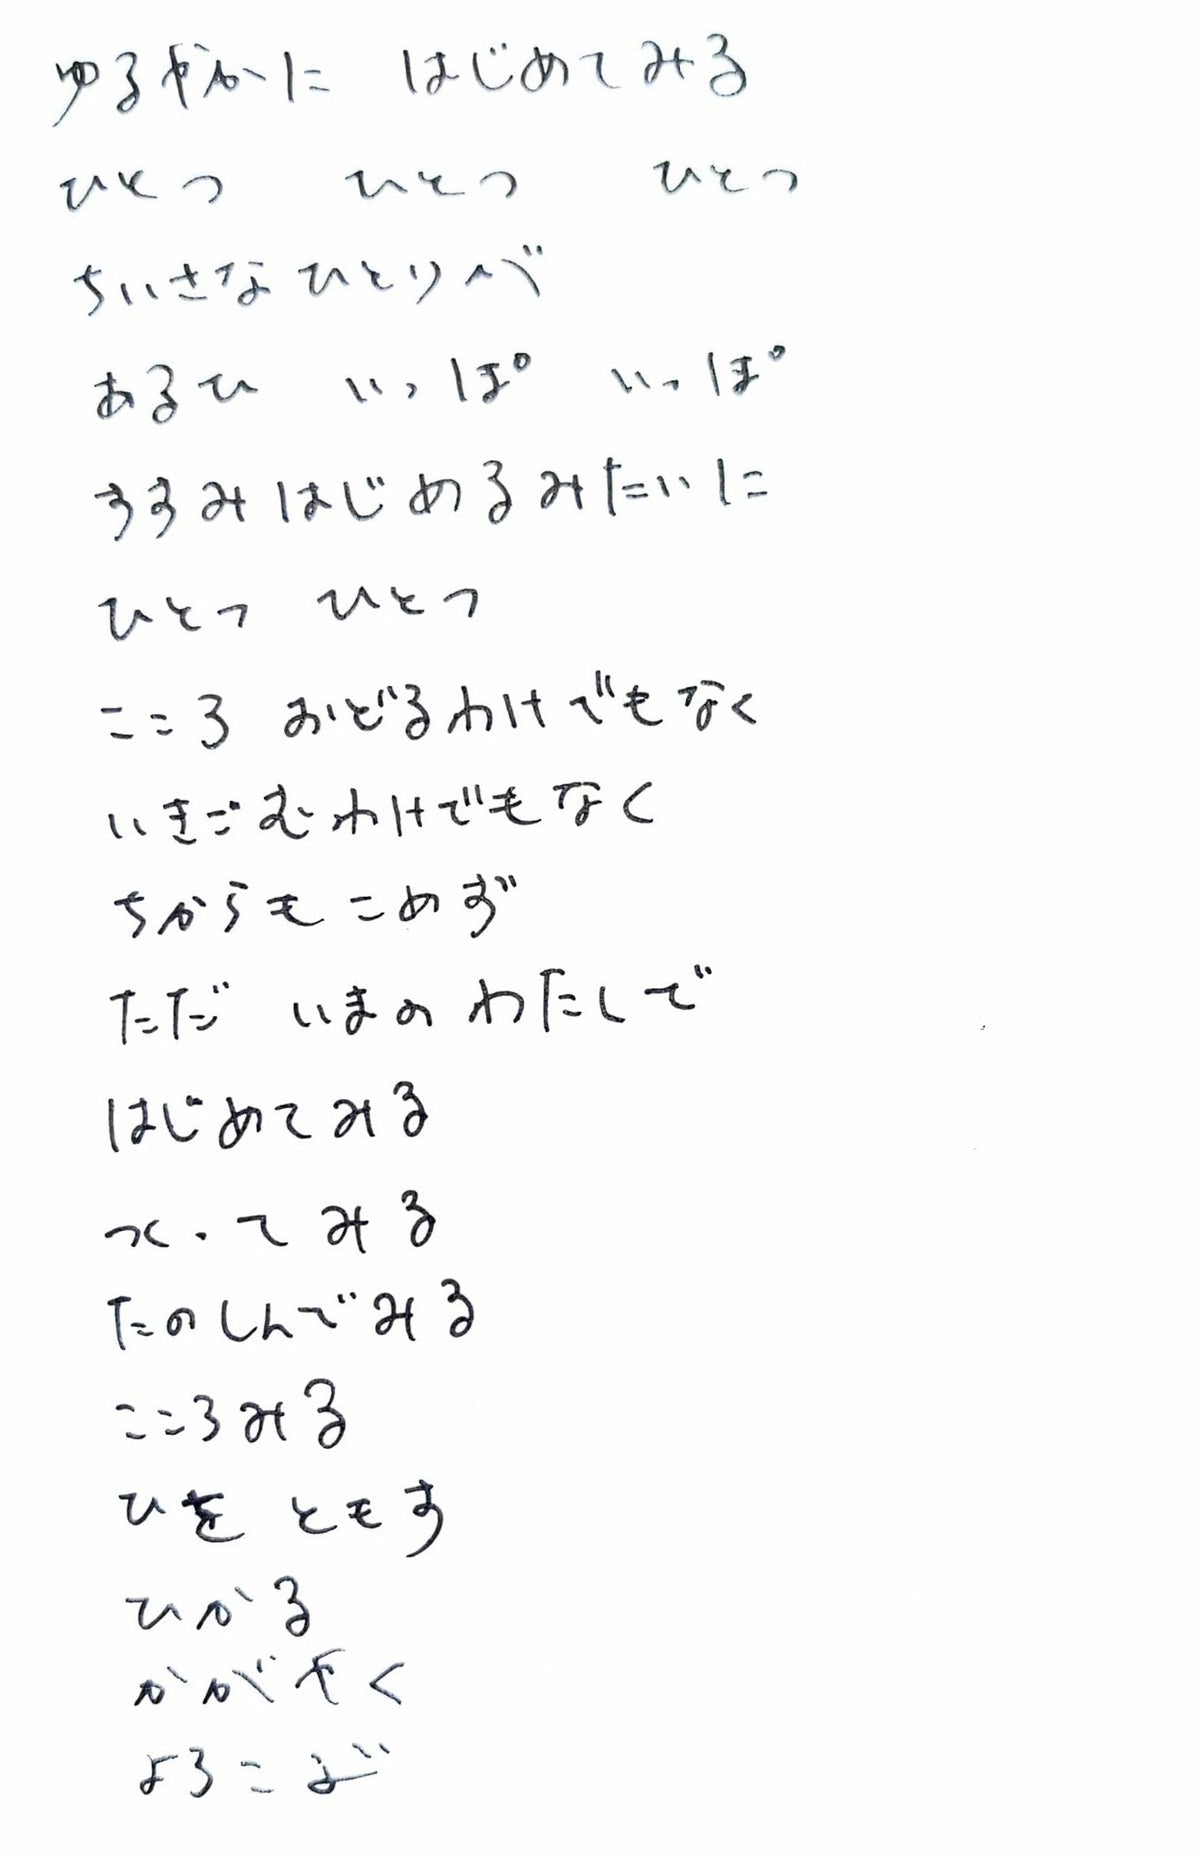 ゆるやかに はじめてみる
ひとつ ひとつ ひとつ
ちいさなひとりべ
あるひ いっぽ いっぽ
すすみはじめるみたいに
ひとつ ひとつ
こころ おどるわけでもなく
いきごむわけでもなく
ちからもこめず
ただ いまの わたしで
はじめてみる
つくってみる
たのしんでみる
こころみる
ひを ともす
ひかる
かがやく
よろこぶ